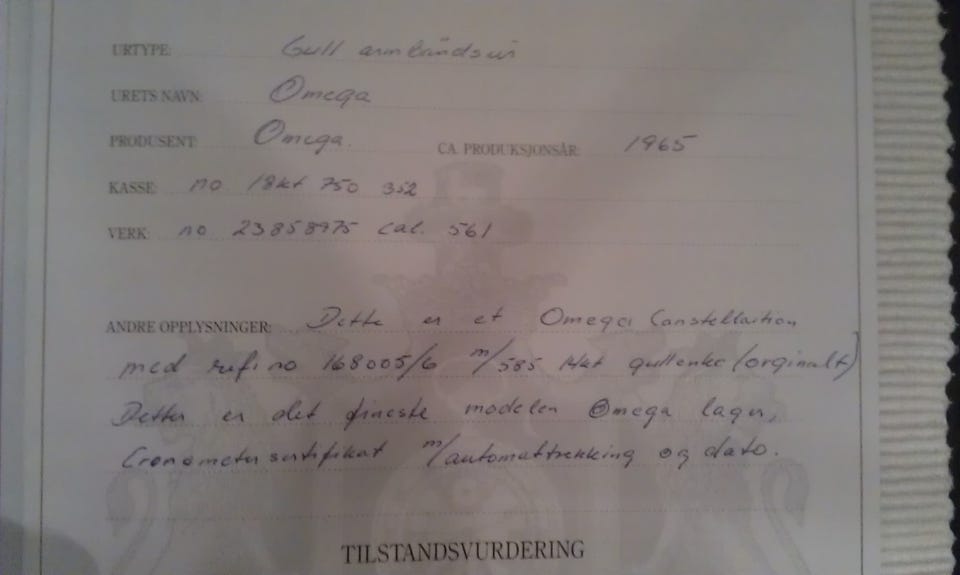 URTYPE: Gull armbåndsur
URETS NAVN: Omega
PRODUSENT: Omega. CA. PRODUKSJONSÅR: 1965
KASSE: no 18kt 750 352
VERK: no 23858975 cal. 561
ANDRE OPPLYSNINGER: Dette er et Omega Constellation
med refi no 168005/6 m/585 14kt gullenke (orginalt)
Dette er det fineste modelen Omega lager,
Cronometersertifikat m/automattrekking og dato.
TILSTANDSVURDERING